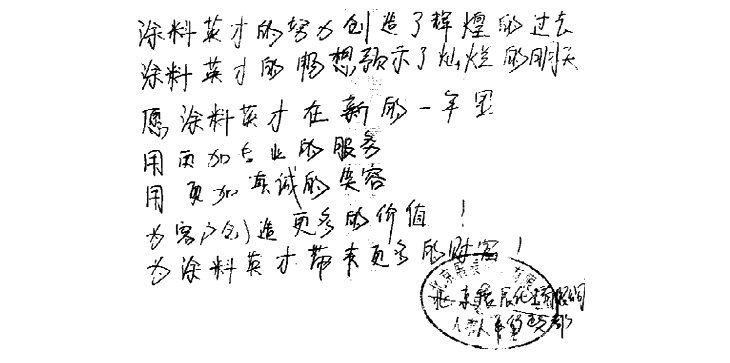 涂料英才的努力创造了辉煌的过去
涂料英才的畅想预示了灿烂的明天
愿涂料英才在新的一年里
用更加专业的服务
用更加真诚的笑容
为客户创造更多的价值！
为涂料英才带来更多的财富！
北京
人